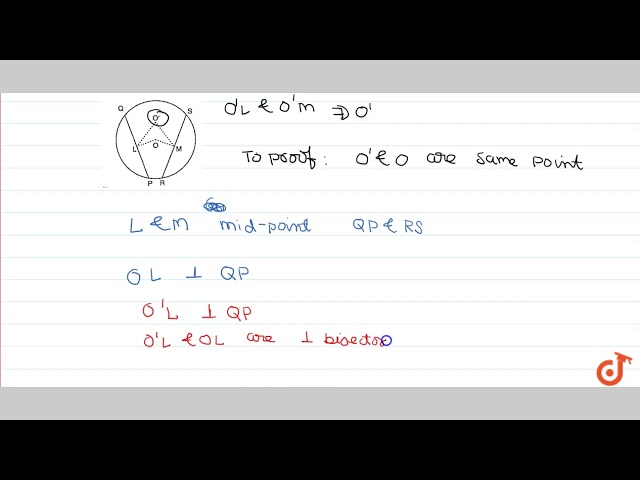 Q S
O'
L O M
P R
O'L & O'M ⇒ O'
To proof: O' & O are same point
L & M mid-point QP & RS
OL ⊥ QP
O'L ⊥ QP
O'L & OL are ⊥ bisector
d